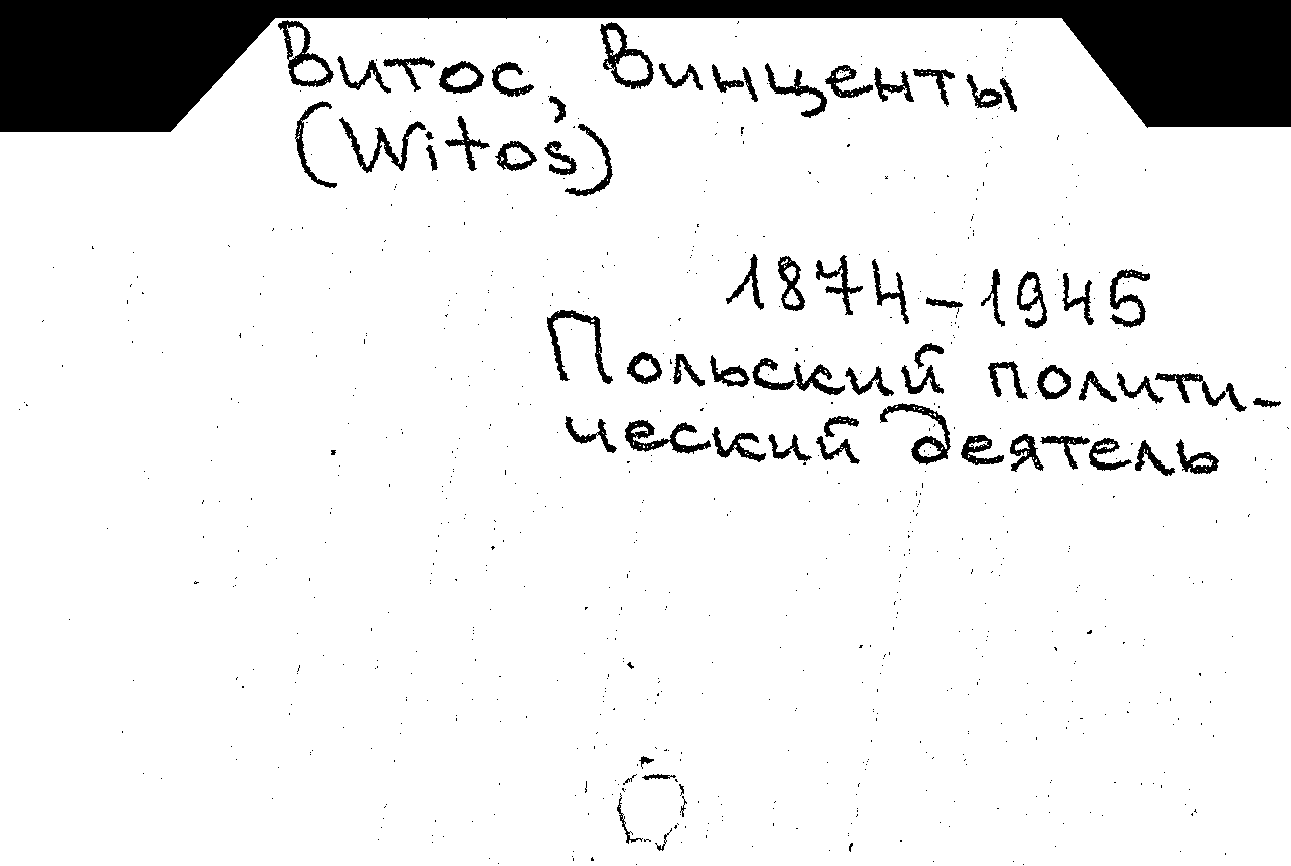 Витос, Винценты
(Witos)
1874-1945
Польский полити-
ческий деятель